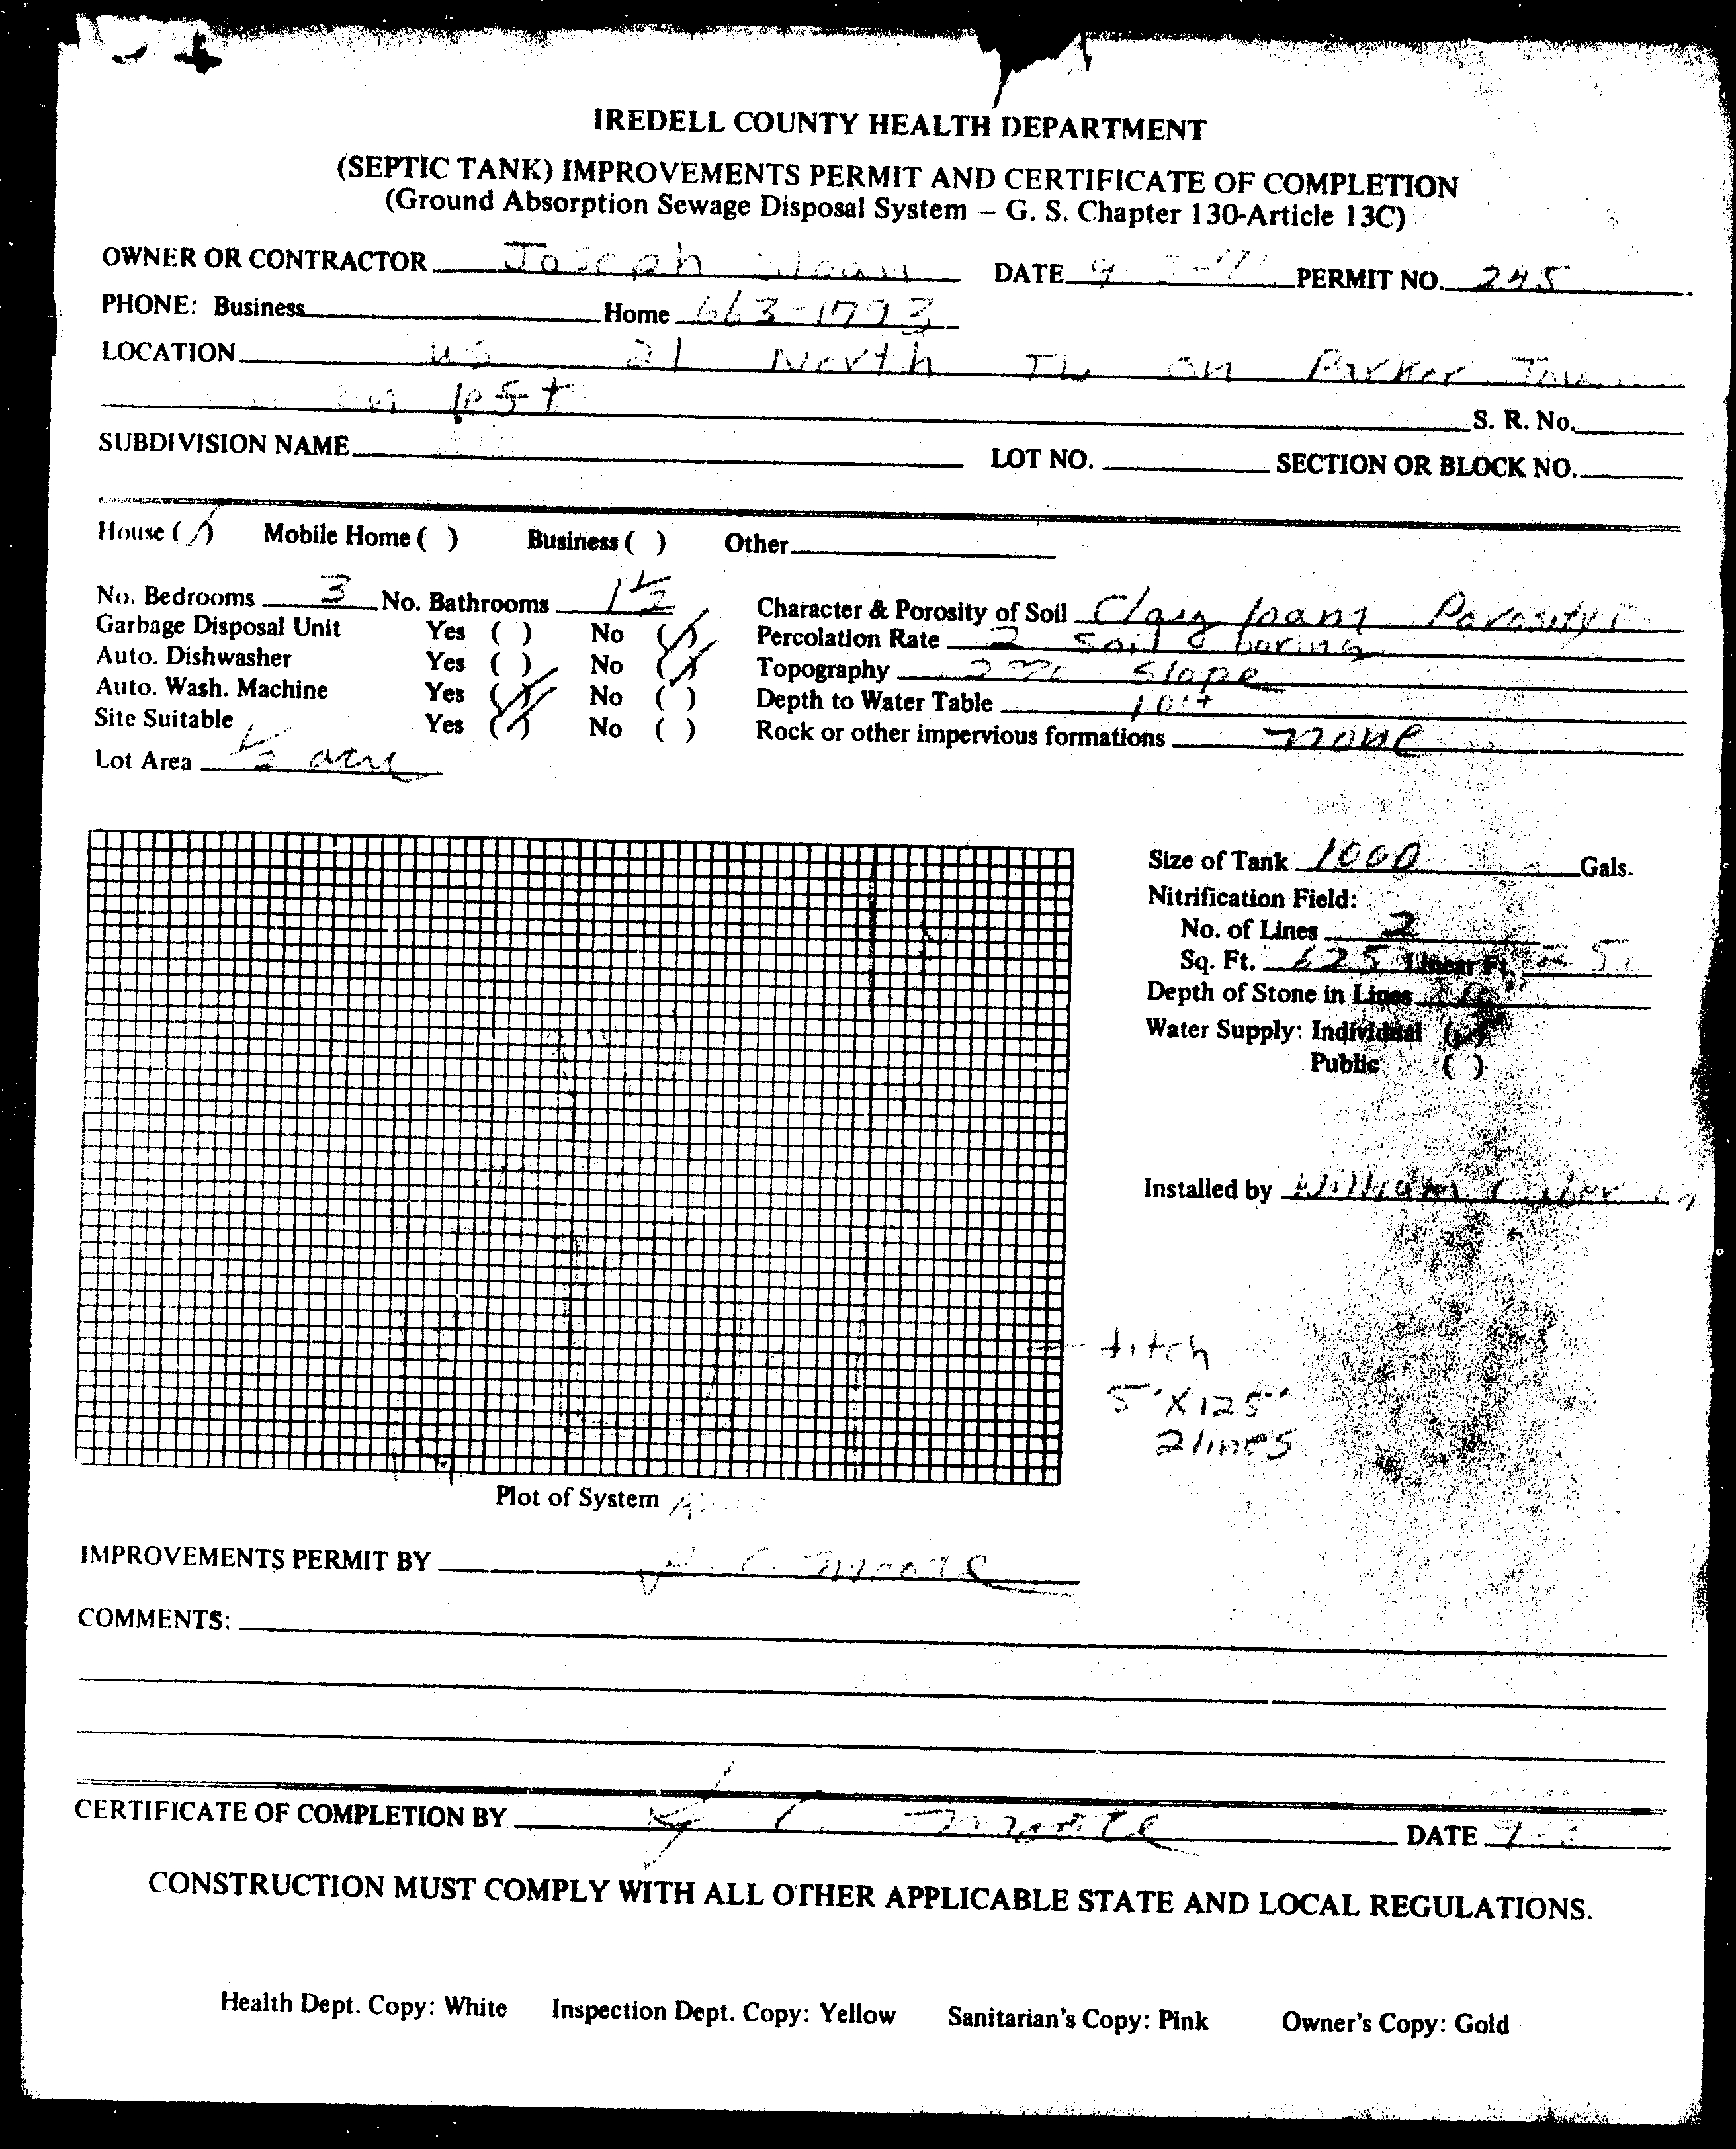 IREDELL COUNTY HEALTH DEPARTMENT
(SEPTIC TANK) IMPROVEMENTS PERMIT AND CERTIFICATE OF COMPLETION
(Ground Absorption Sewage Disposal System – G. S. Chapter 130-Article 13C)
OWNER OR CONTRACTOR Joseph Sloan DATE PERMIT NO. 245
PHONE: Business Home 663-1793
LOCATION US 21 North TL on Parker
on left S. R. No.
SUBDIVISION NAME LOT NO. SECTION OR BLOCK NO.
House (/) Mobile Home ( ) Business ( ) Other
No. Bedrooms 3 No. Bathrooms 1 1/2 Character & Porosity of Soil Clay loam Porosity
Garbage Disposal Unit Yes ( ) No (X) Percolation Rate 2 soil boring
Auto. Dishwasher Yes ( ) No (X) Topography 2% slope
Auto. Wash. Machine Yes (X) No ( ) Depth to Water Table 10'+
Site Suitable Yes (X) No ( ) Rock or other impervious formations none
Lot Area 1/2 acre
Size of Tank 1000 Gals.
Nitrification Field:
No. of Lines 2
Sq. Ft. 625 Linear Ft.
Depth of Stone in Lines
Water Supply: Individual (X)
Public ( )
Installed by William
ditch
5'X125'
2 lines
Plot of System
IMPROVEMENTS PERMIT BY C. Moore
COMMENTS:
CERTIFICATE OF COMPLETION BY C. Moore DATE
CONSTRUCTION MUST COMPLY WITH ALL OTHER APPLICABLE STATE AND LOCAL REGULATIONS.
Health Dept. Copy: White Inspection Dept. Copy: Yellow Sanitarian's Copy: Pink Owner's Copy: Gold